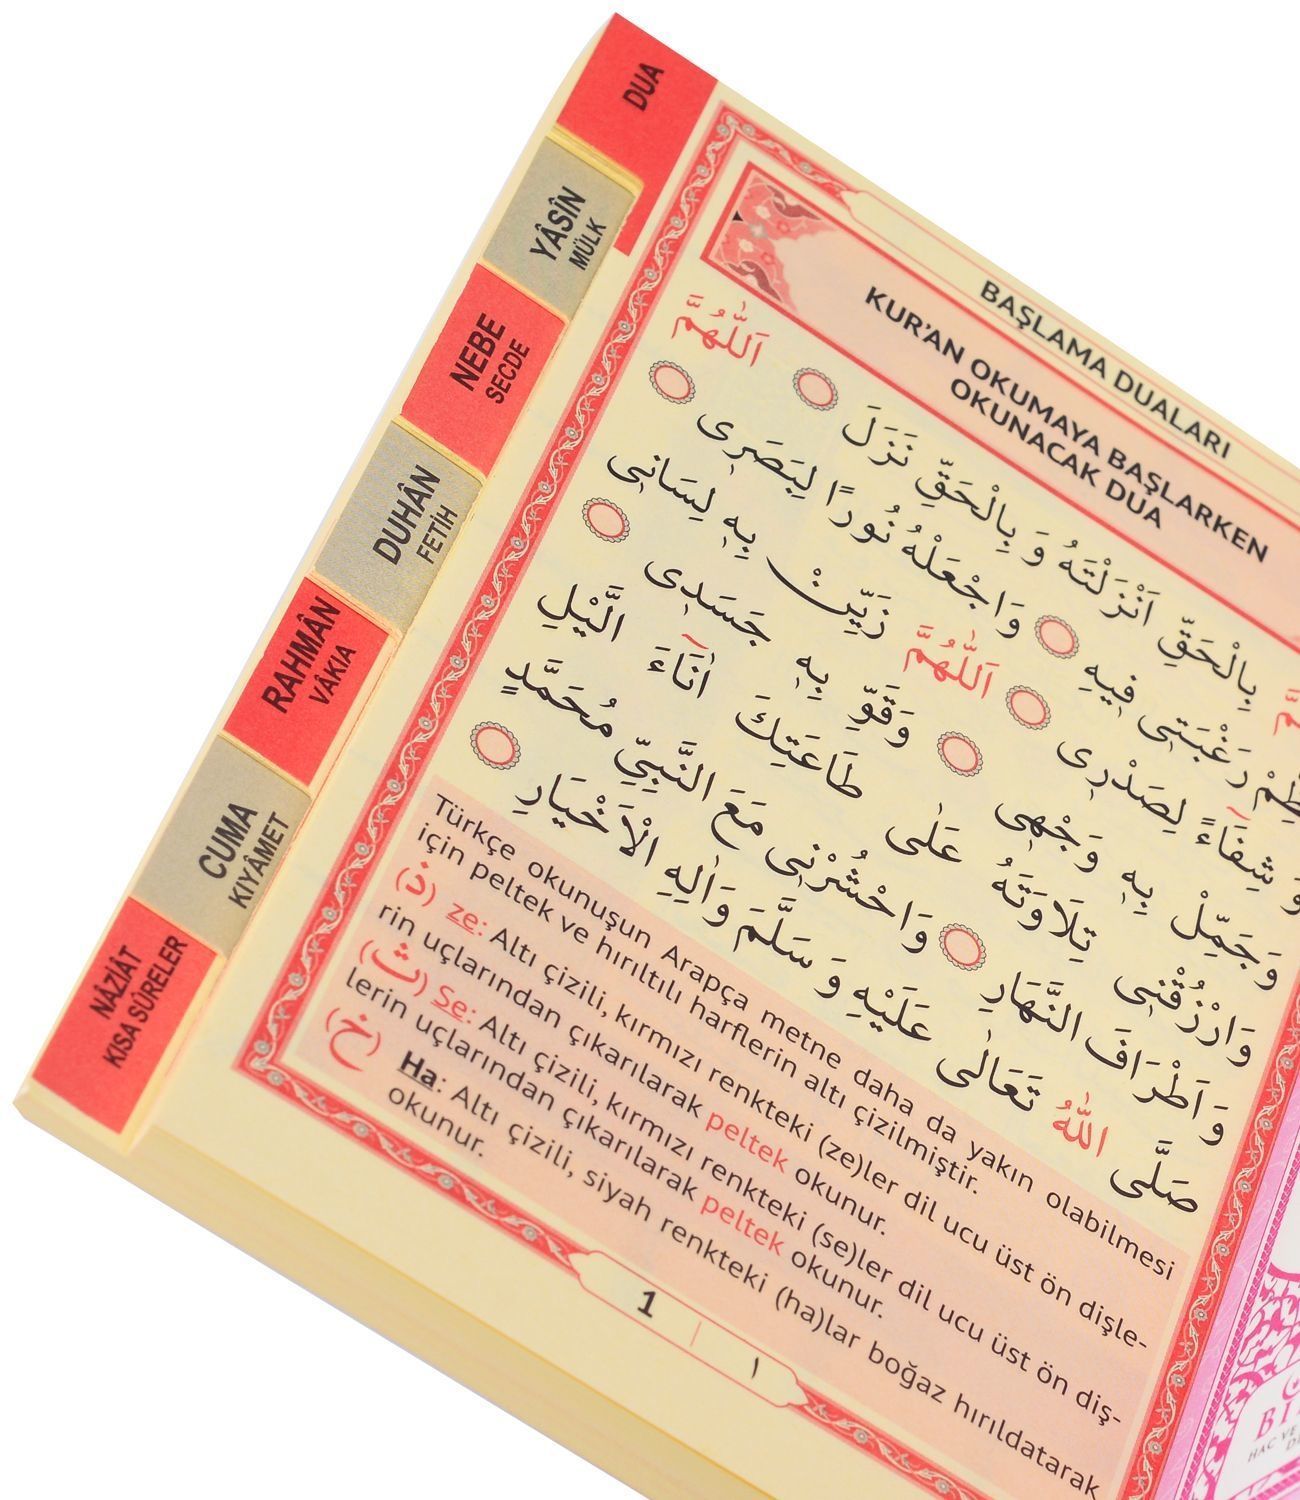 DUA
YÂSÎN
MÜLK
NEBE
SECDE
DUHÂN
FETİH
RAHMÂN
VÂKIA
CUMA
KIYÂMET
NÂZİÂT
KISA SÛRELER
BAŞLAMA DUALARI
KUR’AN OKUMAYA BAŞLARKEN
OKUNACAK DUA
بِالْحَقِّ اَنْزَلْتَهُ وَ بِالْحَقِّ نَزَلَ اَللّٰهُمَّ
رَغْبَتٖى فٖيهِ وَاجْعَلْهُ نُورًا لِبَصَرٖى
وَ شِفَٓاءً لِصَدْرٖى اَللّٰهُمَّ زَيِّنْ بِهٖ لِسَانٖى
وَجَمِّلْ بِهٖ وَجْهٖى وَقَوِّ بِهٖ جَسَدٖى
وَارْزُقْنٖى تِلَاوَتَهُ عَلٰى طَاعَتِكَ اٰنَٓاءَ الَّيْلِ
وَاَطْرَافَ النَّهَارِ وَاحْشُرْنٖى مَعَ النَّبِيِّ مُحَمَّدٍ
صَلَّى اللّٰهُ تَعَالٰى عَلَيْهِ وَ سَلَّمَ وَاٰلِهِ الْاَخْيَارِ
Türkçe okunuşun Arapça metne daha da yakın olabilmesi
için peltek ve hırıltılı harflerin altı çizilmiştir.
(ذ) ze: Altı çizili, kırmızı renkteki (ze)ler dil ucu üst ön dişle-
rin uçlarından çıkarılarak peltek okunur.
(ث) Se: Altı çizili, kırmızı renkteki (se)ler dil ucu üst ön diş-
lerin uçlarından çıkarılarak peltek okunur.
(خ) Ha: Altı çizili, siyah renkteki (ha)lar boğaz hırıldatarak
okunur.
1 | ١
HAC VE